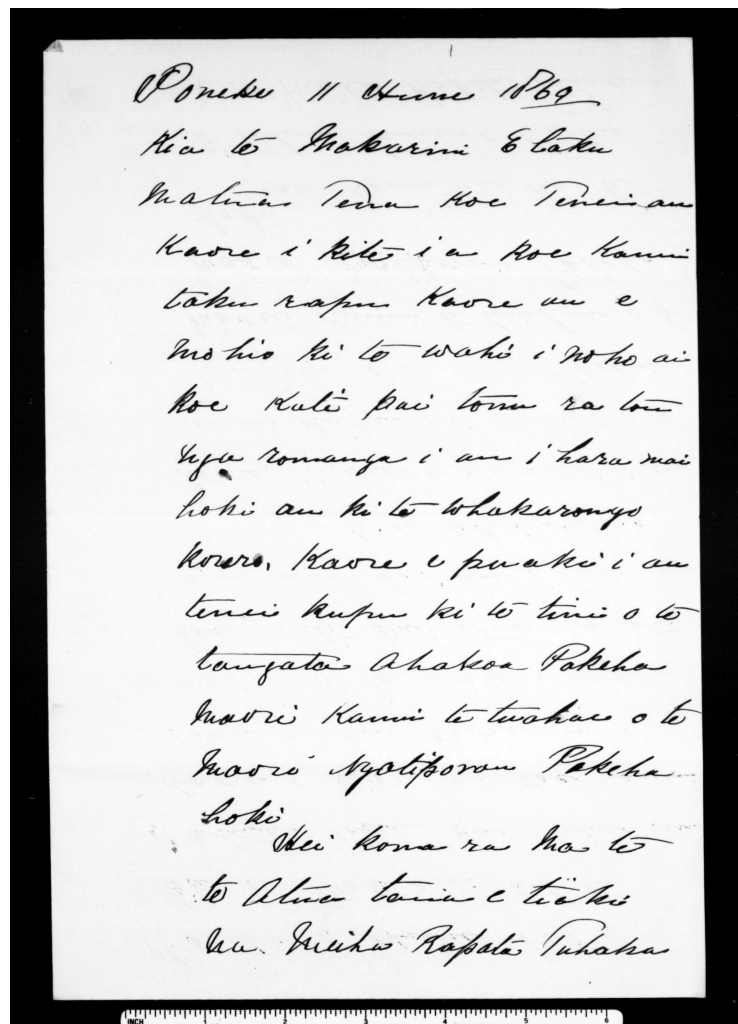 Poneke 11 Hune 1869
Kia te Makarini E taku
Matua Tena koe Tenei au
Kaore i kite i a koe Kanui
taku rapu Kaore au e
mohio ki te wahi i noho ai
koe Kati pai tonu ra tou
nga romanga i au i hara mai
hoki au ki te whakarongo
korero, Kaore e puaki i au
tenei kupu ki te tini o te
tangata Ahakoa Pakeha
Maori Kanui te tuahae o te
Maori Ngatiporou Pakeha
hoki
Hei kona ra Ma te
te Atua taua e tiaki
Na Meiha Rapata Tuhaka
INCH 1 2 3 4 5 6